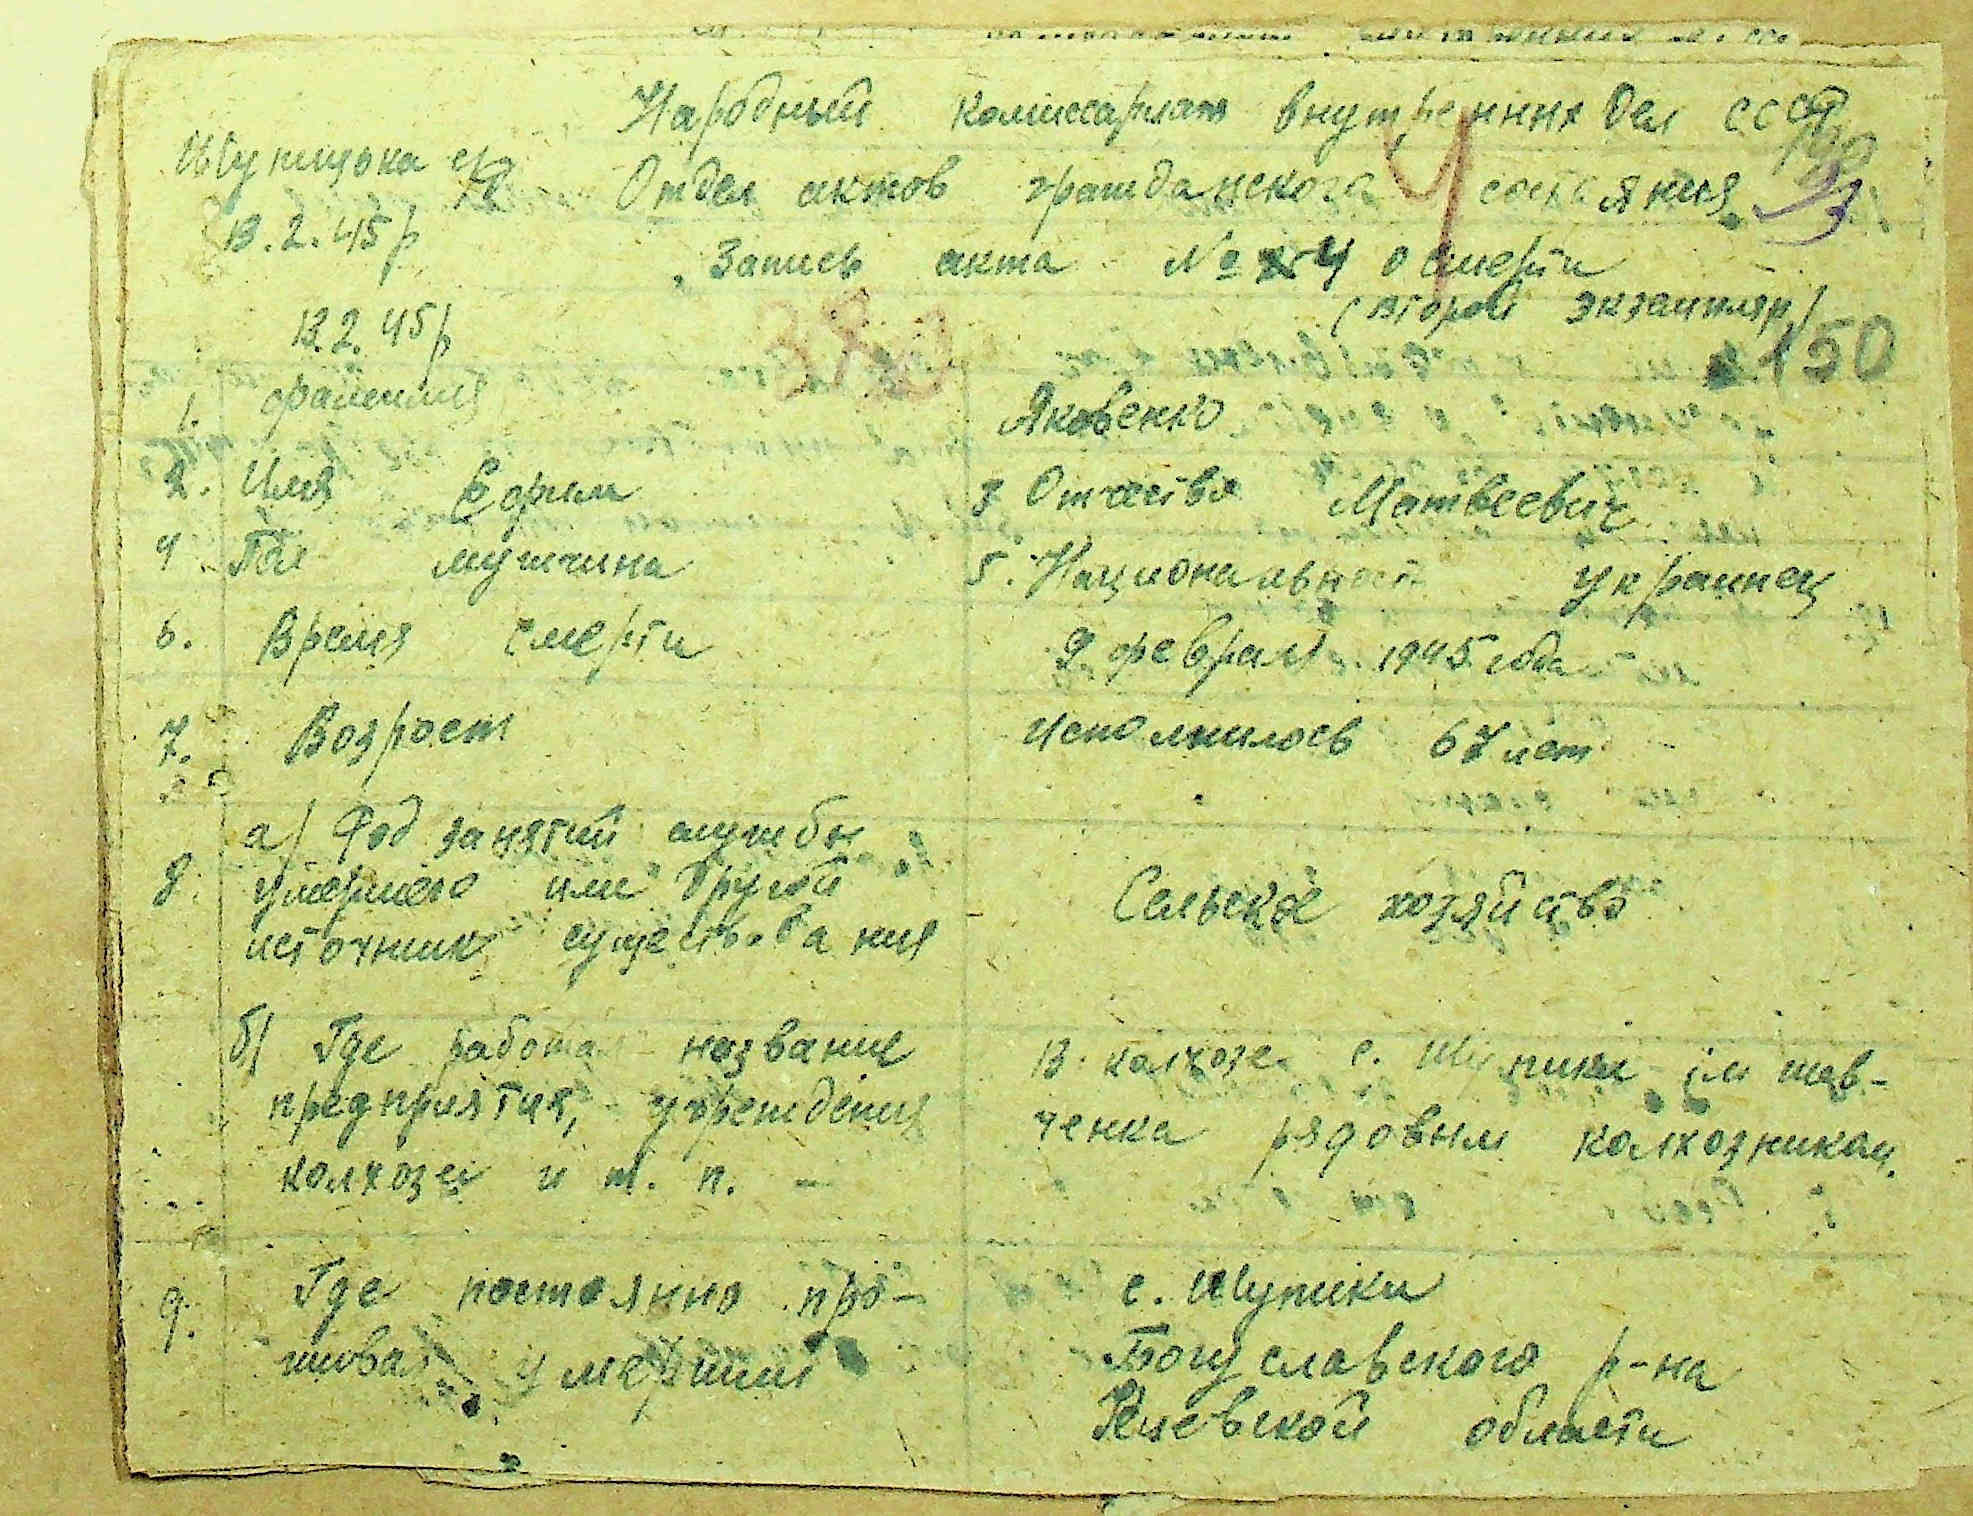 Народный комиссариат внутренних дел СССР
Шупицька с/р
Отдел актов гражданского состаяния
13.2.45р
Запись акта № 4 о смерти
(второй экземпляр)
13.2.45р
150
1. фамилия Яковенко
2. Имя Ефим 3 Отчество Матвеевич
4 Пол мужчина 5. Национальность украинец
6. Время смерти 9 февраля 1945 года
7. Возраст Исполнилось 67 лет
а) Род занятий службы
8. умершего или другой
источник существования
Сельское хозяйство
б) Где работал название
предприятия, учреждения
колхоза и т. п. –
В колхозе с. Шупики ім Шев-
ченка рядовым колхозником
9. Где постоянно про-
живал умерший
с. Шупики
Богуславского р-на
Киевской области